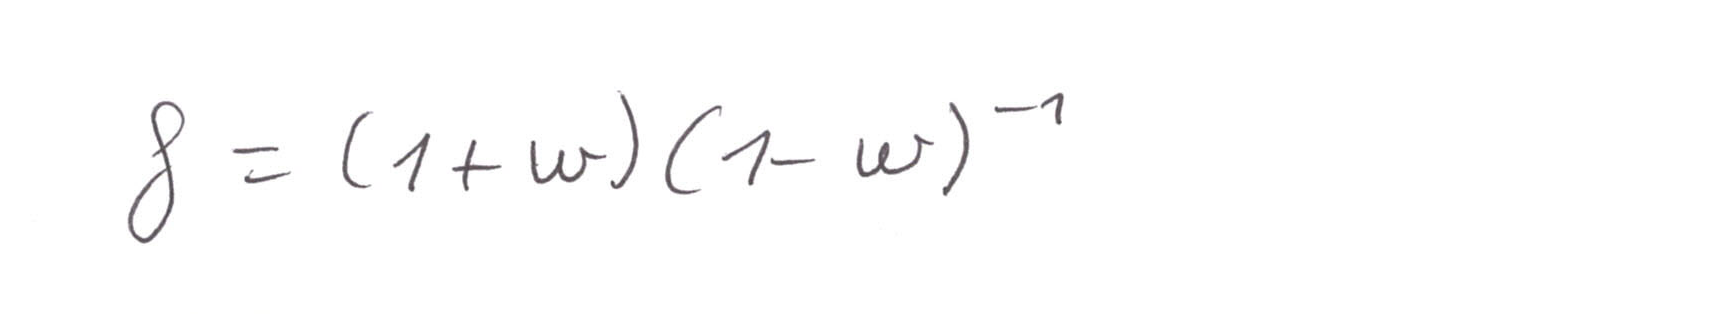 f = (1+w)(1-w)^{-1}